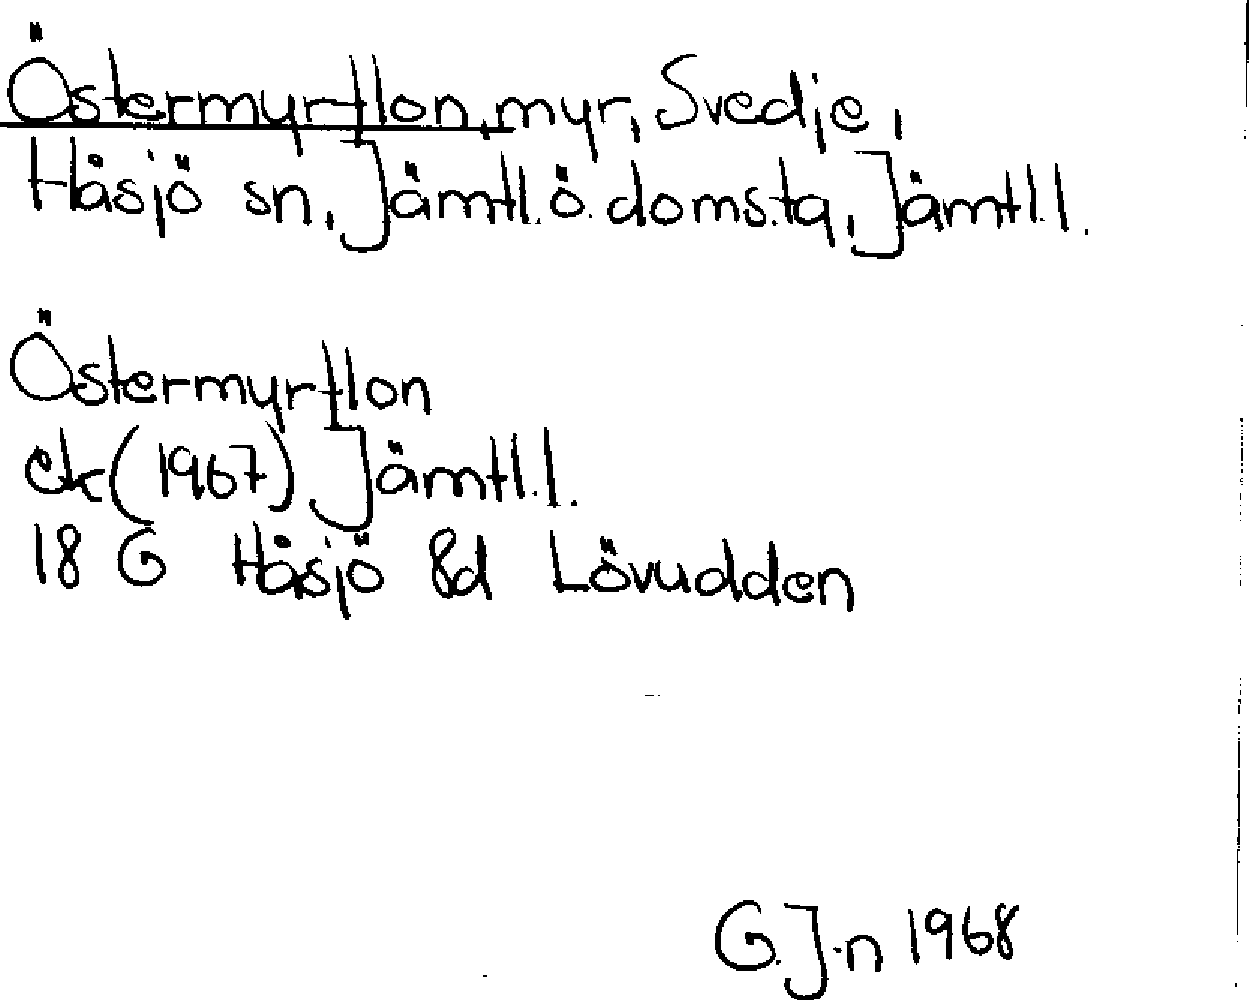 Östermyrflon, myr, Svedje,
Håsjö sn, Jämtl. ö. doms.tg, Jämtl. l.
Östermyrflon
ek (1967) Jämtl. l.
18 G Håsjö 8d Lövudden
G. J-n 1968